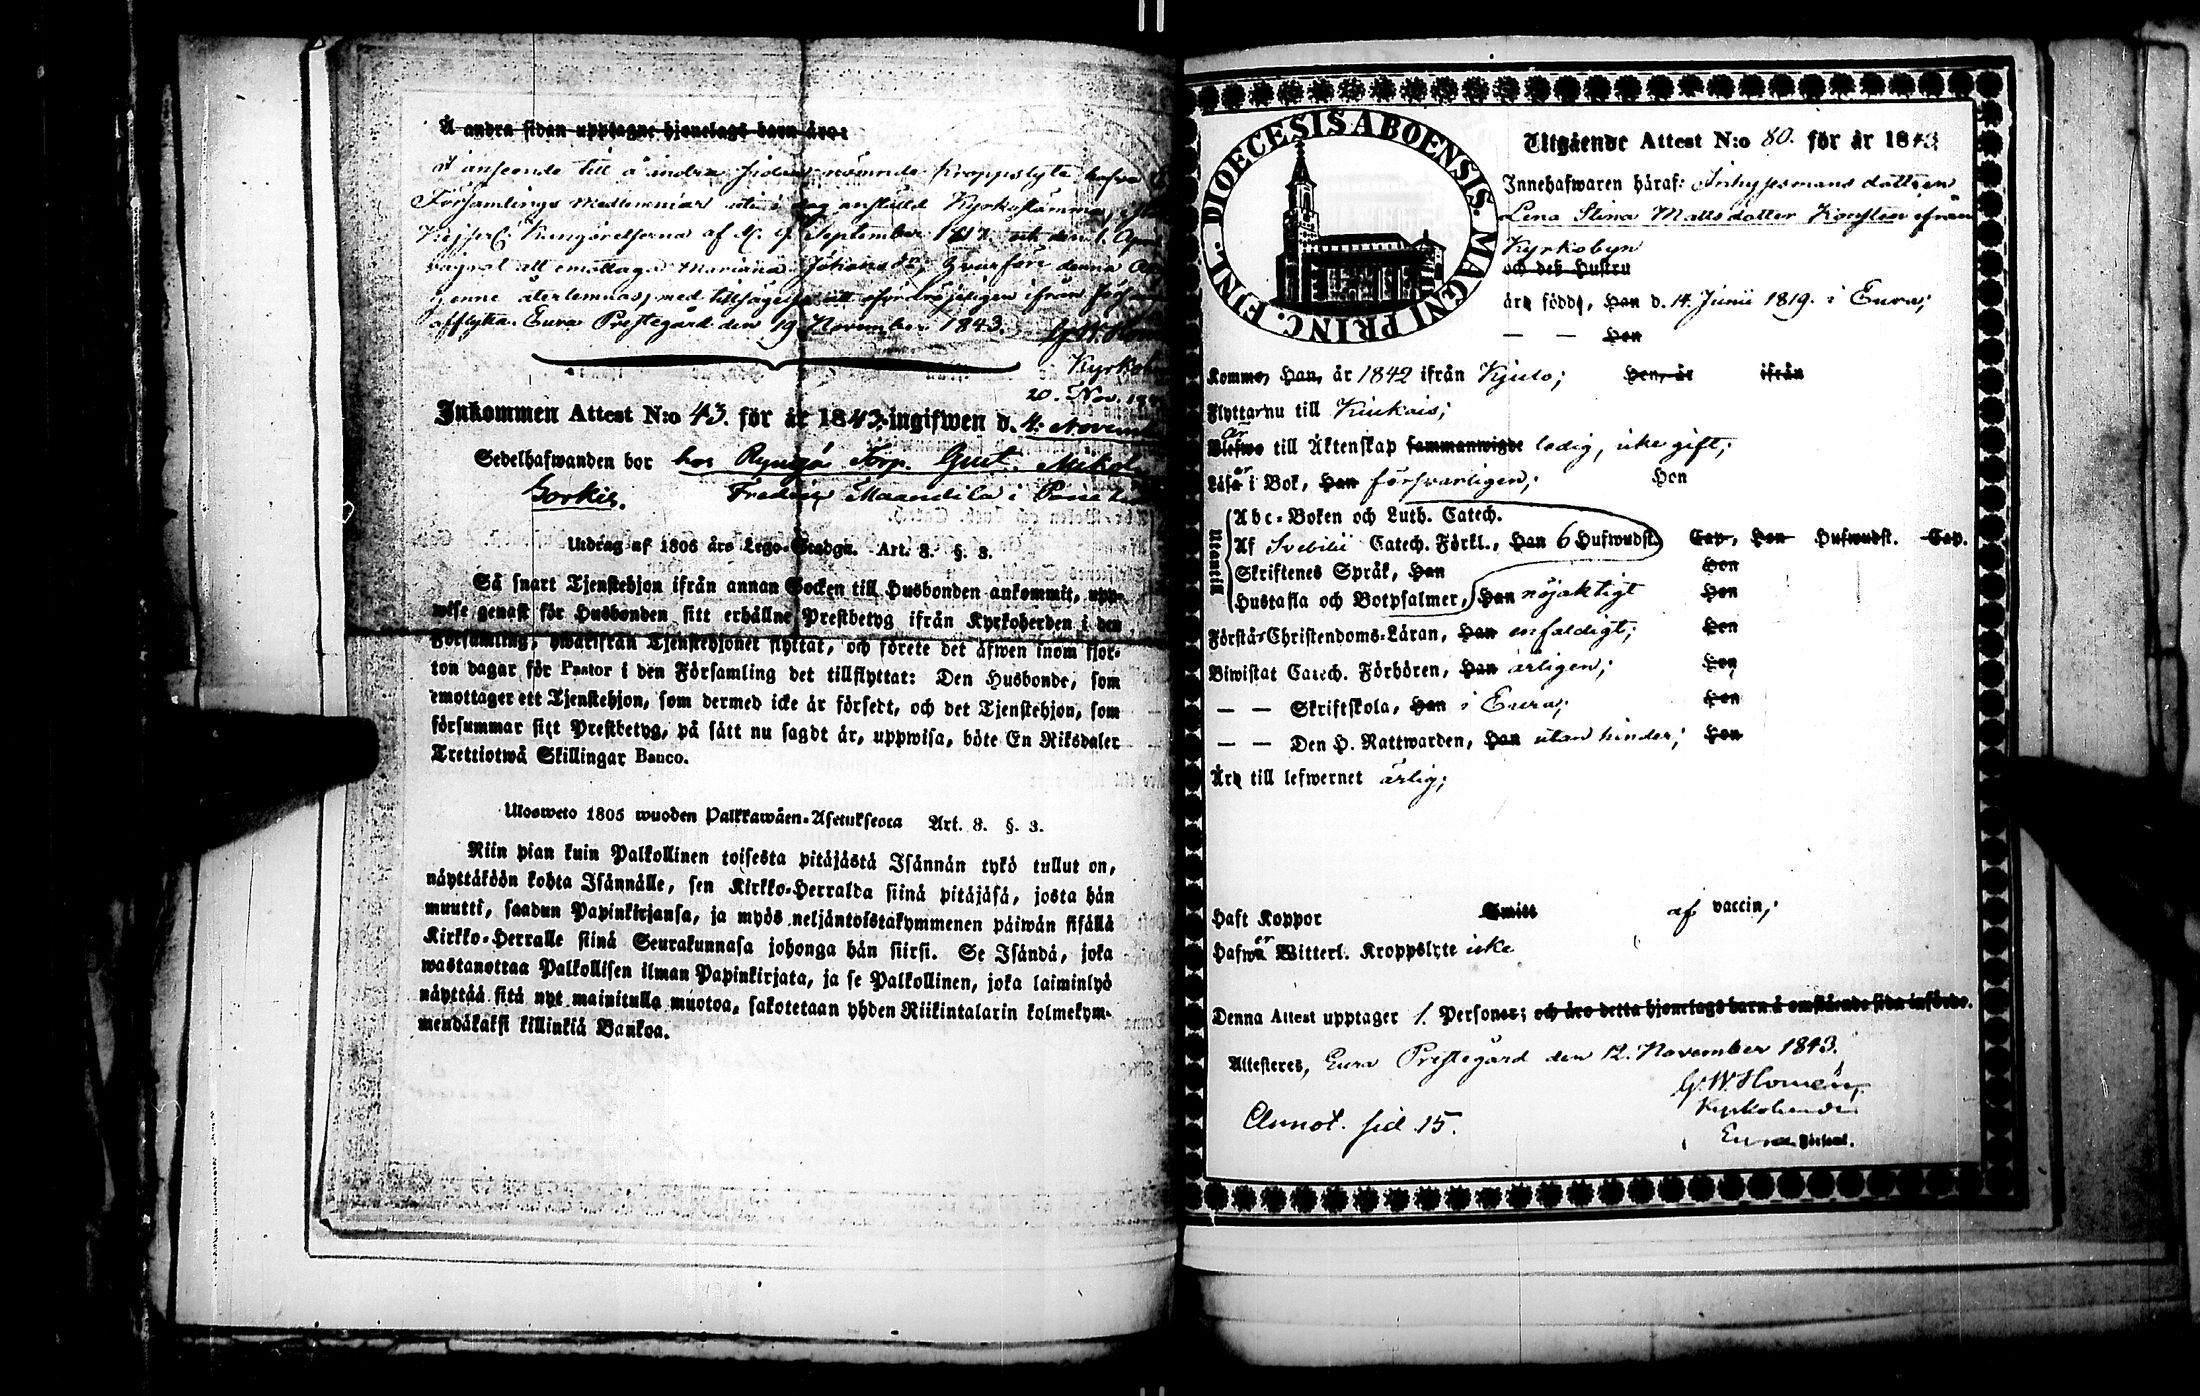 Å andra sidan upptagne hjonelags barn äro:
I anseende till å andra sidan nämnde Kroppslyte hafva
Församlings medlemmar uti i dag anstäld Kyrkostämma,
Kejserl. Kungörelserna af d. 9. September 1817. och den 1. Apr
vägrat att emottaga Mariana Johans dr, hvarföre denna
henne återlemnas, med tillsägelse att ofördröjeligen ifrån
afflytta. Eura Prestegård den 19 November 1843.
G. W. Hom
Kyrkoh
20. Nov. 18
Inkommen Attest N:o 43. för år 1843. ingifwen d. 4. Novemb
Sedelhafwanden bor hos Torp. Gust.
Sorkis. Fredric i
Utdrag af 1805 års Lego-Stadga. Art. 3. §. 3.
Så snart Tjenstehjon ifrån annan Socken till Husbonden ankommit, upp-
wise genast för Husbonden sitt erhållne Prestbetyg ifrån Kyrkoherden i den
Församling, hwarifrån Tjenstehjonet flyttat, och förete det äfwen inom fjor-
ton dagar för Pastor i den Församling det tillflyttat: Den Husbonde, som
emottager ett Tjenstehjon, som dermed icke är försedt, och det Tjenstehjon, som
försummar sitt Prestbetyg, på sätt nu sagdt är, uppwisa, böte En Riksdaler
Trettiotwå Skillingar Banco.
Ulosweto 1805 wuoden Palkkawäen-Asetuksesta Art. 3. §. 3.
Niin pian kuin Palkollinen toisesta pitäjästä Isännän tykö tullut on,
näyttäköön kohta Isännälle, sen Kirkko-Herralda siinä pitäjäsä, josta hän
muutti, saadun Papinkirjansa, ja myös neljäntoistakymmenen päiwän sisällä
Kirkko-Herralle siinä Seurakunnasa johonga hän siirsi. Se Isändä, joka
wastanottaa Palkollisen ilman Papinkirjata, ja se Palkollinen, joka laiminlyö
näyttää sitä nyt mainitulla muotoa, sakotetaan yhden Riikintalarin kolmekym-
mendäkaksi killinkiä Bankoa.
DIOECESIS ABOENSIS. MAGNI PRINC. FINL.
Utgående Attest N:o 80. för år 1843
Innehafwaren häraf: Inhysesmans dottren
Lena Stina Mattsdotter Konsten ifrån
Kyrkobyn
och deß Hustru
äro födde, Han d. 14. Junii 1819. i Eura;
— — Hon
Komme, Han, år 1842 ifrån Kjulo; Hon, år ifrån
Flyttar nu till Kiukais;
är
Blefwo till Äktenskap sammanwigde ledig, icke gift;
Läsa i Bok, Han försvarligen; Hon
Utantill
Abc-Boken och Luth. Catech.
Af Svebilii Catech. Förkl., Han 6 Hufwudst. Cap., Hon Hufwudst. Cap.
Skriftenes Språk, Han Hon
Hustafla och Botpsalmer, Han nöjaktigt Hon
Förstår Christendoms-Läran, Han enfaldigt; Hon
Biwistat Catech. Förhören, Han årligen; Hon
— — Skriftskola, Han i Eura; Hon
— — Den H. Nattwarden, Han utan hinder; Hon
Äro till lefwernet ärlig;
Haft Koppor Smitt af vaccin;
Hafwa Witterl. Kroppslyte icke
Denna Attest upptager 1. Personer; och äro detta hjonelags barn å omstående sida införde.
Attesteres, Eura Prestegård den 12. November 1843.
G. W. Homén,
Kyrkoherde i
Eura Församl.
Annot. sid. 15.